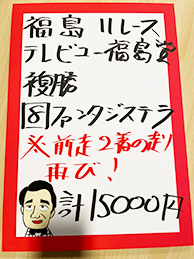 福島 11レース
テレビュー福島賞
複勝
⑧ファンタジステラ
※前走2着の走り
再び!
計15000円